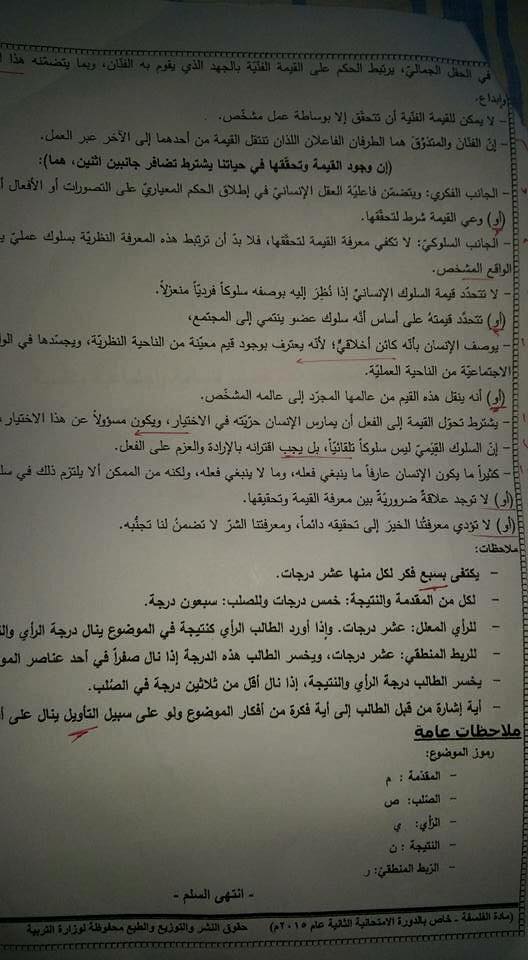 في الحقل الجماليّ، يرتبط الحكم على القيمة الفنّيّة بالجهد الذي يقوم به الفنّان، وبما يتضمّنه هذا
وإبداع.
– لا يمكن للقيمة الفنّية أن تتحقّق إلا بوساطة عمل مشخّص.
– إنّ الفنّان والمتذوّق هما الطرفان الفاعلان اللذان تنتقل القيمة من أحدهما إلى الآخر عبر العمل.
(إن وجود القيمة وتحقّقها في حياتنا يشترط تضافر جانبين اثنين، هما):
– الجانب الفكري: ويتضمّن فاعليّة العقل الإنسانيّ في إطلاق الحكم المعياريّ على التصورات أو الأفعال أو
(أو) وعي القيمة شرط لتحقّقها.
– الجانب السلوكيّ: لا تكفي معرفة القيمة لتحقّقها، فلا بدّ أن ترتبط هذه المعرفة النظريّة بسلوك عمليّ
الواقع المشخص.
– لا تتحدّد قيمة السلوك الإنسانيّ إذا نُظِرَ إليه بوصفه سلوكاً فرديّاً منعزلاً.
(أو) تتحدّد قيمتهُ على أساس أنّه سلوك عضو ينتمي إلى المجتمع،
– يوصف الإنسان بأنّه كائن أخلاقيّ؛ لأنّه يعترف بوجود قيم معيّنة من الناحية النظريّة، ويجسّدها في
الاجتماعيّة من الناحية العمليّة.
(أو) أنه ينقل هذه القيم من عالمها المجرّد إلى عالمه المشخّص.
– يشترط تحوّل القيمة إلى الفعل أن يمارس الإنسان حرّيّته في الاختيار، ويكون مسؤولاً عن هذا الاختيار،
– إنّ السلوك القِيَميّ ليس سلوكاً تلقائيّاً، بل يجب اقترانه بالإرادة والعزم على الفعل.
– كثيراً ما يكون الإنسان عارفاً ما ينبغي فعله، وما لا ينبغي فعله، ولكنه من الممكن ألا يلتزم ذلك في
(أو) لا توجد علاقةٌ ضروريّةٌ بين معرفة القيمة وتحقيقها.
(أو) لا تؤدي معرفتُنا الخيرَ إلى تحقيقه دائماً، ومعرفتنا الشرّ لا تضمنُ لنا تجنُّبه.
ملاحظات:
– يكتفى بسبع فكر لكل منها عشر درجات.
– لكل من المقدمة والنتيجة: خمس درجات وللصلب: سبعون درجة.
– للرأي المعلل: عشر درجات. وإذا أورد الطالب الرأي كنتيجة في الموضوع ينال درجة الرأي
– للربط المنطقي: عشر درجات، ويخسر الطالب هذه الدرجة إذا نال صفراً في أحد عناصر
– يخسر الطالب درجة الرأي والنتيجة، إذا نال أقل من ثلاثين درجة في الصّلب.
– أية إشارة من قبل الطالب إلى أية فكرة من أفكار الموضوع ولو على سبيل التأويل ينال على
ملاحظات عامة
رموز الموضوع:
– المقدّمة : م
– الصّلب: ص
– الرأي: ي
– النتيجة : ن
– الرّبط المنطقيّ: ر
- انتهى السلم -
(مادة الفلسفة - خاص بالدورة الامتحانية الثانية عام ٢٠١٥م) حقوق النشر والتوزيع والطبع محفوظة لوزارة التربية